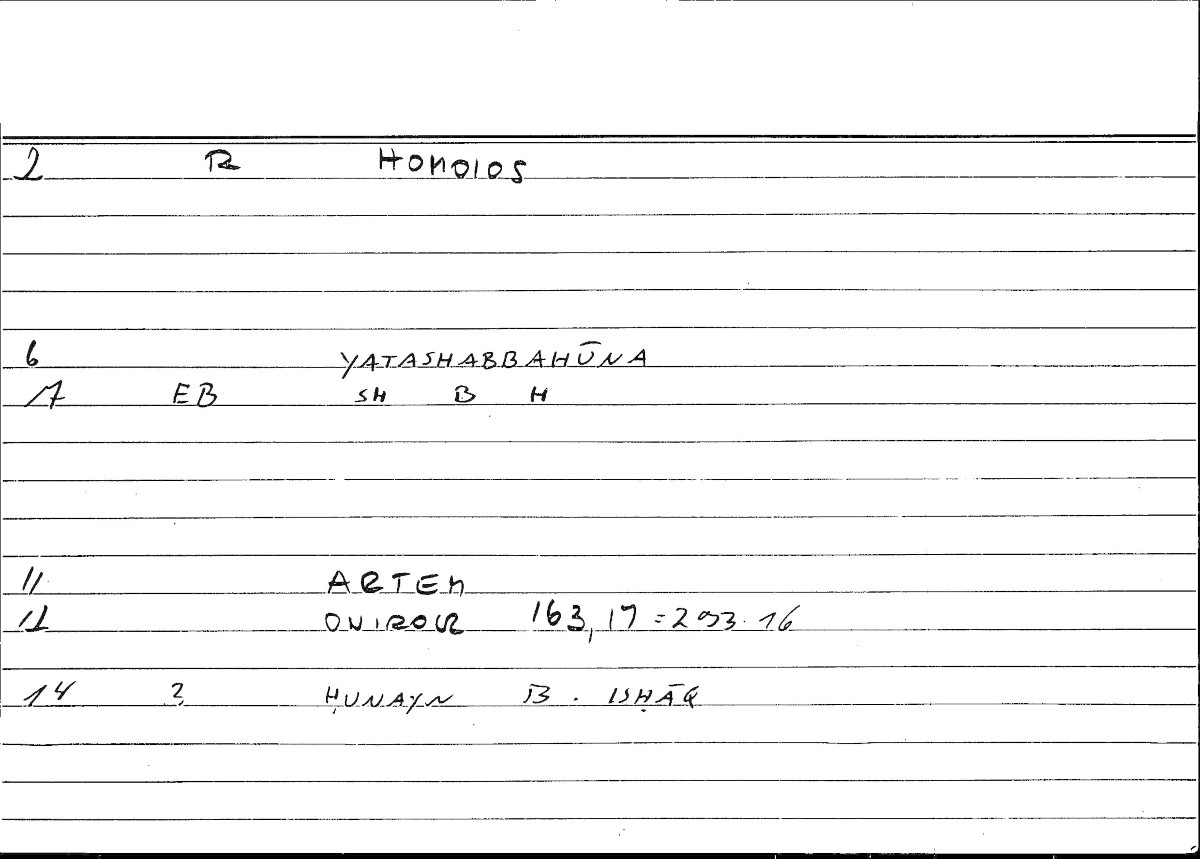 2 R HOMOIOS
6 YATASHABBAHŪNA
7 EB SH B H
11 ARTEM
12 ONIROCR 163,17 = 293.16
14 2 ḤUNAYN B. ISḤĀQ